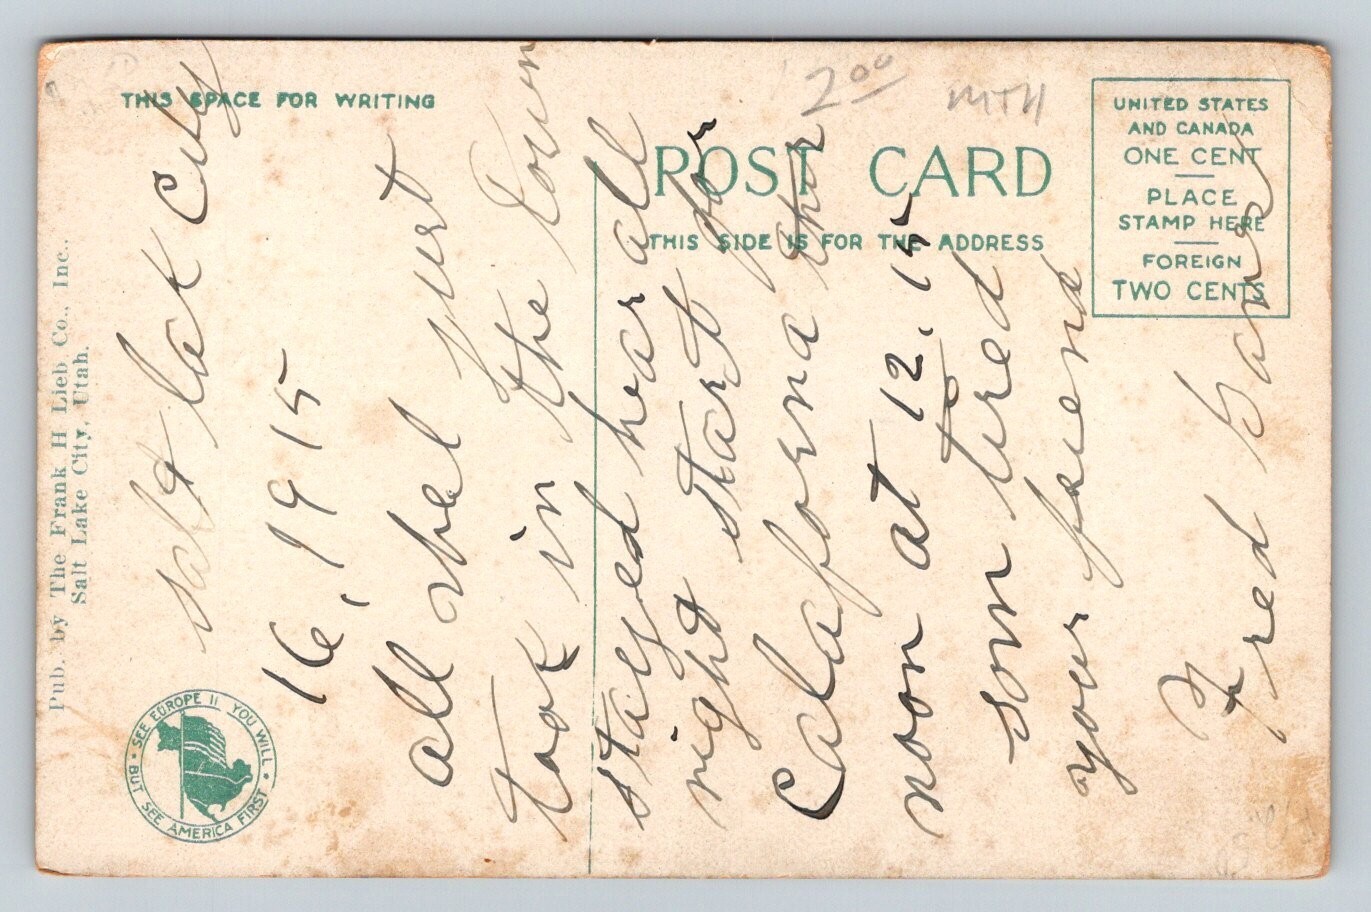 THIS SPACE FOR WRITING
2.00 MTH
POST CARD
THIS SIDE IS FOR THE ADDRESS
UNITED STATES
AND CANADA
ONE CENT
PLACE
STAMP HERE
FOREIGN
TWO CENTS
Pub. by The Frank H Lieb Co., Inc.,
Salt Lake City, Utah.
SEE EUROPE If YOU WILL
BUT SEE AMERICA FIRST
Salt Lack City
16, 1915
all wel just
took in the town
stayed hear all
night start for
Calaforna thir
noon at 12.15
som tired
your friend
Fred